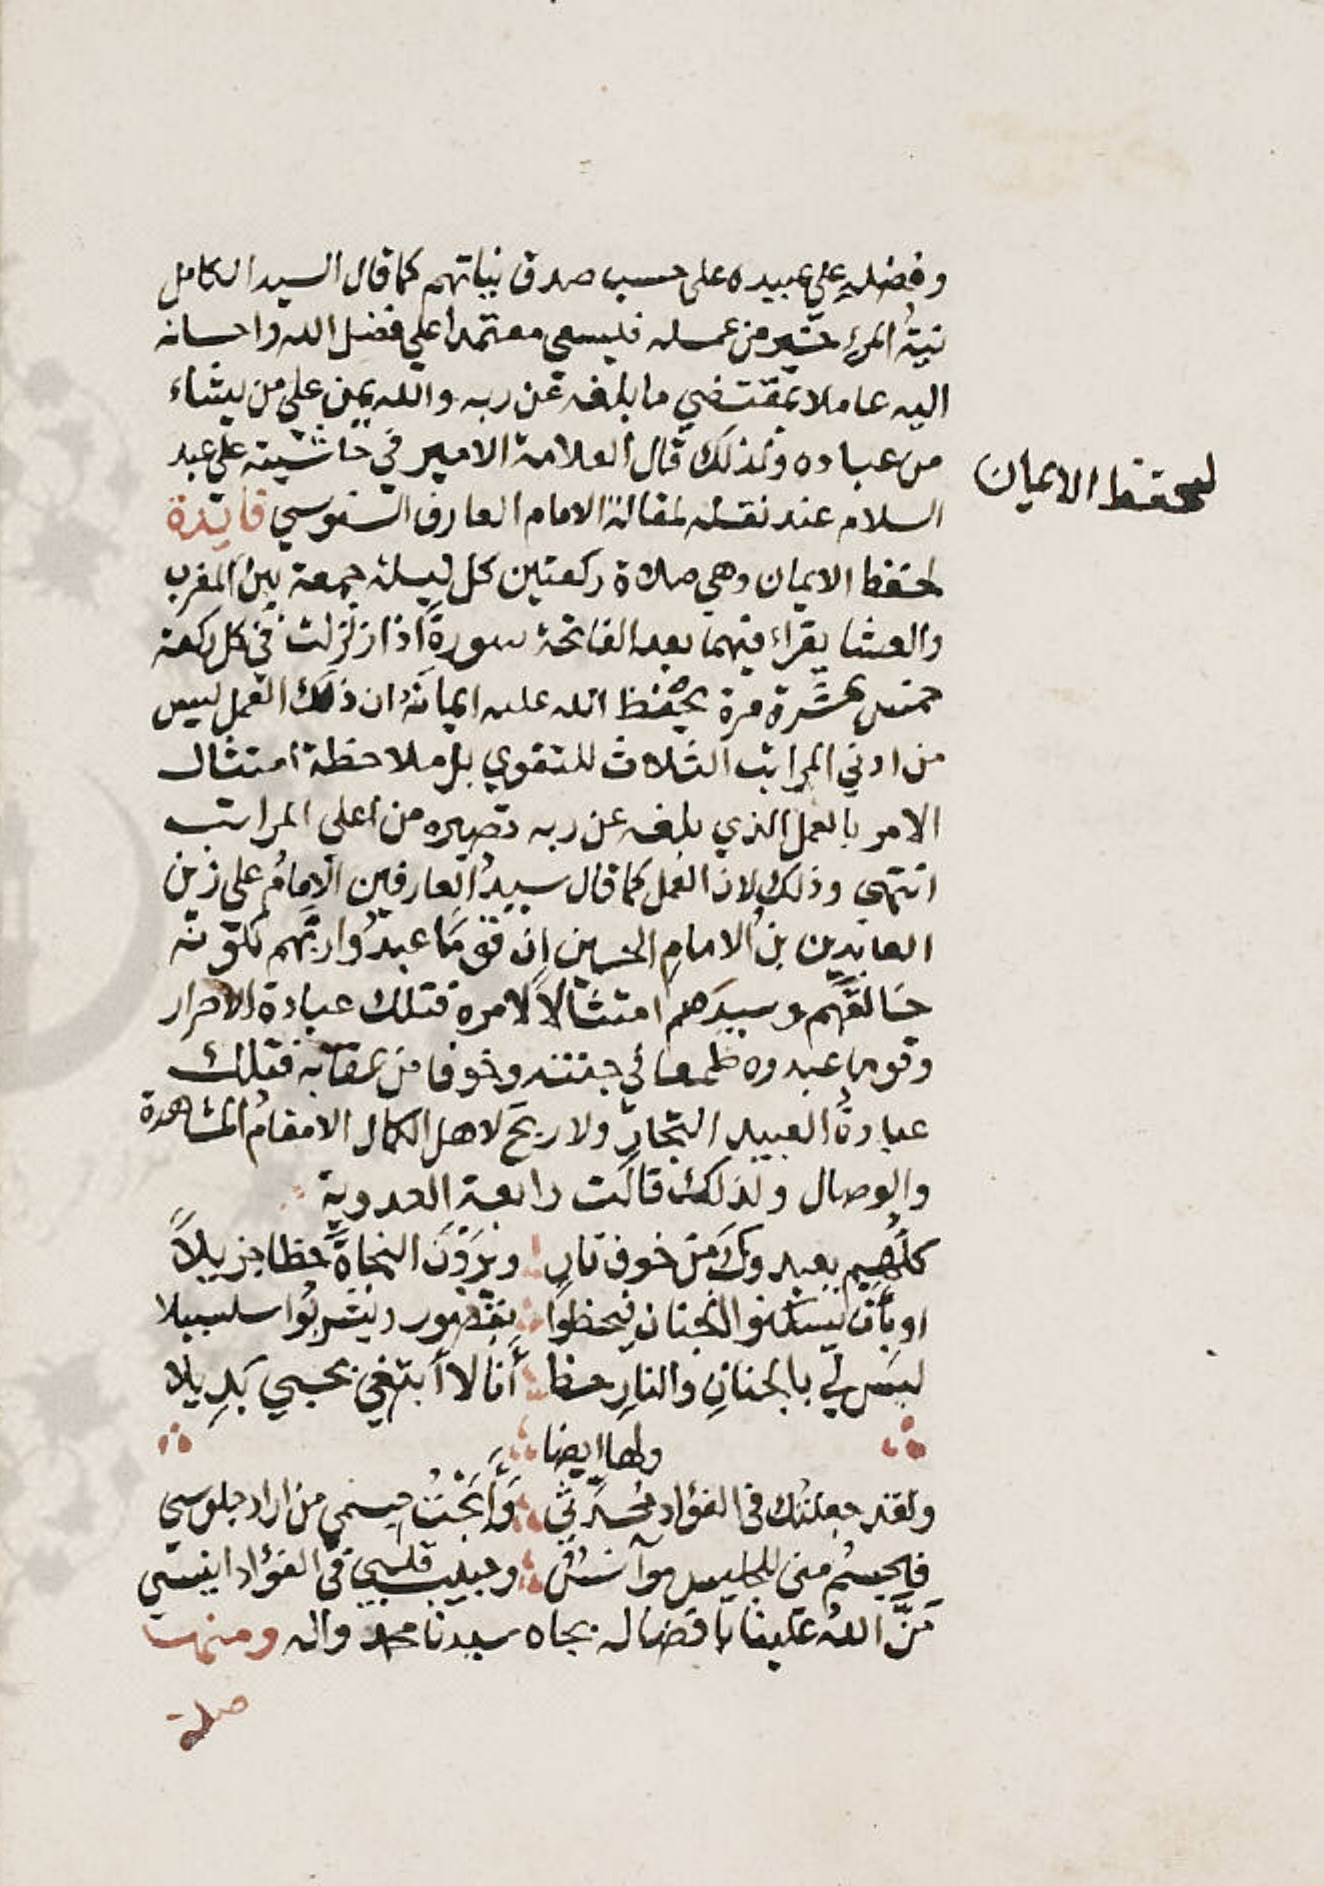 وفضله علي عبيده على حسب صدق نياتهم كما قال السيد الكامل
نيةُ المرءِ خير من عمله فليسعى معتمدا علي فضل الله واحسانه
اليه عاملا بمقتضي ما بلغه عن ربه والله يمن علي من يشاء
من عباده ولذلك قال العلامة الامير في حاشيته علي عبد
لحفظ الايمان
السلام عند نقله لمقالة الامام العارف السنوسي فايدة
لحفظ الايمان وهي صلاة ركعتين كل ليلة جمعة بين المغرب
والعشا يقراء فيهما بعد الفاتحة سورة اذا زلزلت في كل ركعة
خمس عشرة مرة يحفظ الله عليه ايمانه ان ذلك العمل ليس
من ادني المراتب الثلاث للتقوي بل ملاحظة امتثال
الامر بالعمل الذي بلغه عن ربه تصيره من اعلى المراتب
انتهى وذلك لان العمل كما قال سيدُ العارفين الامامُ علي زين
العابدين بن الامام الحسين ان قوما عبدوا ربَّهم لكونه
خالقَهم وسيدَهم امتثالاً لامره فتلك عبادة الاحرار
وقوما عبدوه طمعا في جنته وخوفا من عقابه فتلك
عبادةُ العبيد التجارِ ولا ربحَ لاهل الكمال الا مقامُ المشاهدة
والوصال ولذلك قالت رابعة العدوية
كلُّهم يعبدوك من خوف نارٍ ويرَوْنَ النجاةَ حظا جزيلاً
او بأن يسكنوا الجنان فيحظوا بقصور ويشربوا سلسبيلا
ليس لي بالجنانِ والنارِ حظا أنا لا أبتغي بحبي بَدِيلا
ولها ايضا
ولقد جعلتك في الفؤاد مُحدِّثي وَأَبَحْتُ جسمي من اراد جلوسي
فالجسمُ مني للجليس موآنسٌ وحبيب قلبي في الفؤاد انيسي
مَنَّ اللهُ علينا بافضاله بجاه سيدنا محمد واله ومنها
صلاة